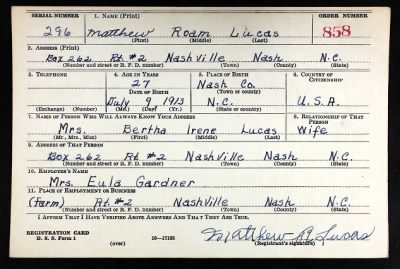 SERIAL NUMBER 1. NAME (Print) ORDER NUMBER
296 Matthew Roam Lucas 858
(First) (Middle) (Last)
2. ADDRESS (Print)
Box 262 Rt. #2 Nashville Nash N.C.
(Number and street or R. F. D. number) (Town) (County) (State)
3. TELEPHONE 4. AGE IN YEARS 5. PLACE OF BIRTH 6. COUNTRY OF CITIZENSHIP
27 Nash Co.
DATE OF BIRTH (Town or county)
July 9 1913 N.C. U.S.A.
(Exchange) (Number) (Mo.) (Day) (Yr.) (State or country)
7. NAME OF PERSON WHO WILL ALWAYS KNOW YOUR ADDRESS 8. RELATIONSHIP OF THAT PERSON
Mrs. Bertha Irene Lucas Wife
(Mr., Mrs., Miss) (First) (Middle) (Last)
9. ADDRESS OF THAT PERSON
Box 262 Rt. #2 Nashville Nash N.C.
(Number and street or R. F. D. number) (Town) (County) (State)
10. EMPLOYER'S NAME
Mrs. Eula Gardner
11. PLACE OF EMPLOYMENT OR BUSINESS
(Farm) Rt. #2 Nashville Nash N.C.
(Number and street or R. F. D. number) (Town) (County) (State)
I AFFIRM THAT I HAVE VERIFIED ABOVE ANSWERS AND THAT THEY ARE TRUE.
REGISTRATION CARD
D. S. S. Form 1 (over) 16—17105
Matthew R. Lucas
(Registrant's signature)